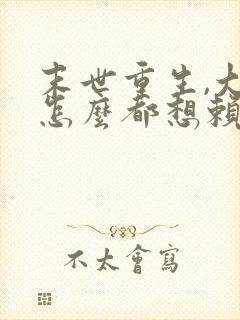 末世重生,大
怎麼都想賴
不太會寫